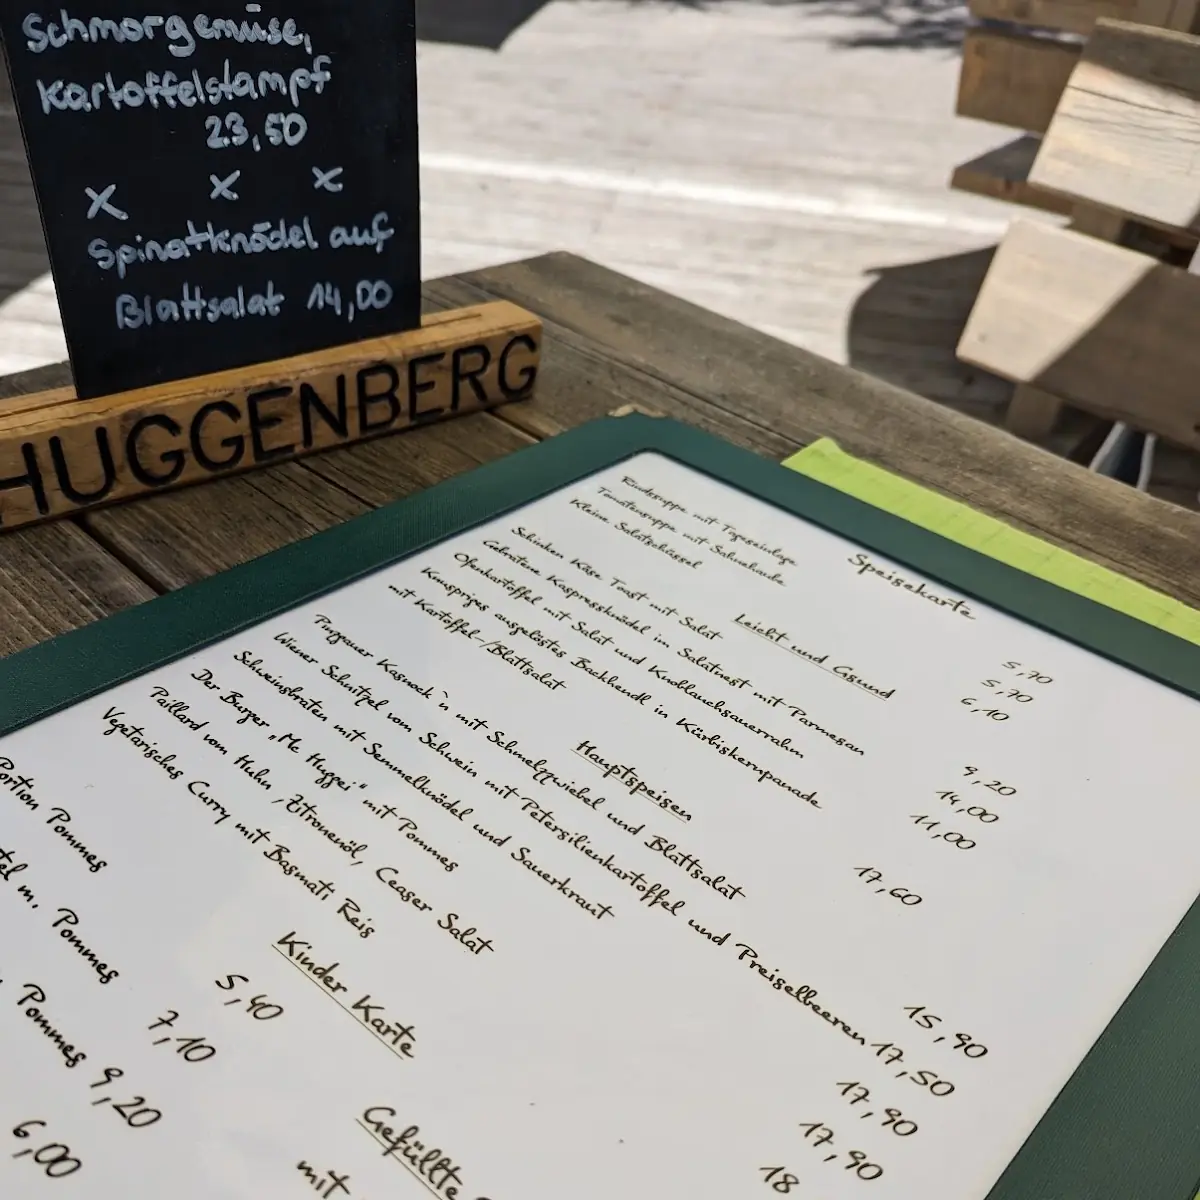 Schmorgemüse,
Kartoffelstampf
23,50
x x x
Spinatknödel auf
Blattsalat 14,00
HUGGENBERG
Speisekarte
Rindssuppe mit Tageseinlage 5,70
Tomatensuppe mit Sahnehaube 5,70
Kleine Salatschüssel 6,10
Leicht und Gsund
Schinken Käse Toast mit Salat 9,20
Gebratene Kaspressknödel im Salatnest mit Parmesan 14,00
Ofenkartoffel mit Salat und Knoblauchsauerrahm 11,00
Knuspriges ausgelöstes Backhendl in Kürbiskernpanade
mit Kartoffel-/Blattsalat 17,60
Hauptspeisen
Pinzgauer Kasnock´n mit Schmelzzwiebel und Blattsalat 15,90
Wiener Schnitzel vom Schwein mit Petersilienkartoffel und Preiselbeeren 17,50
Schweinsbraten mit Semmelknödel und Sauerkraut 17,90
Der Burger „Mc Huggei“ mit Pommes 17,90
Paillard vom Huhn, Zitronenöl, Ceaser Salat 18
Vegetarisches Curry mit Basmati Reis
Kinder Karte
Portion Pommes 5,40
m. Pommes 7,10
Pommes 9,20
6,00
Gefüllte
mit